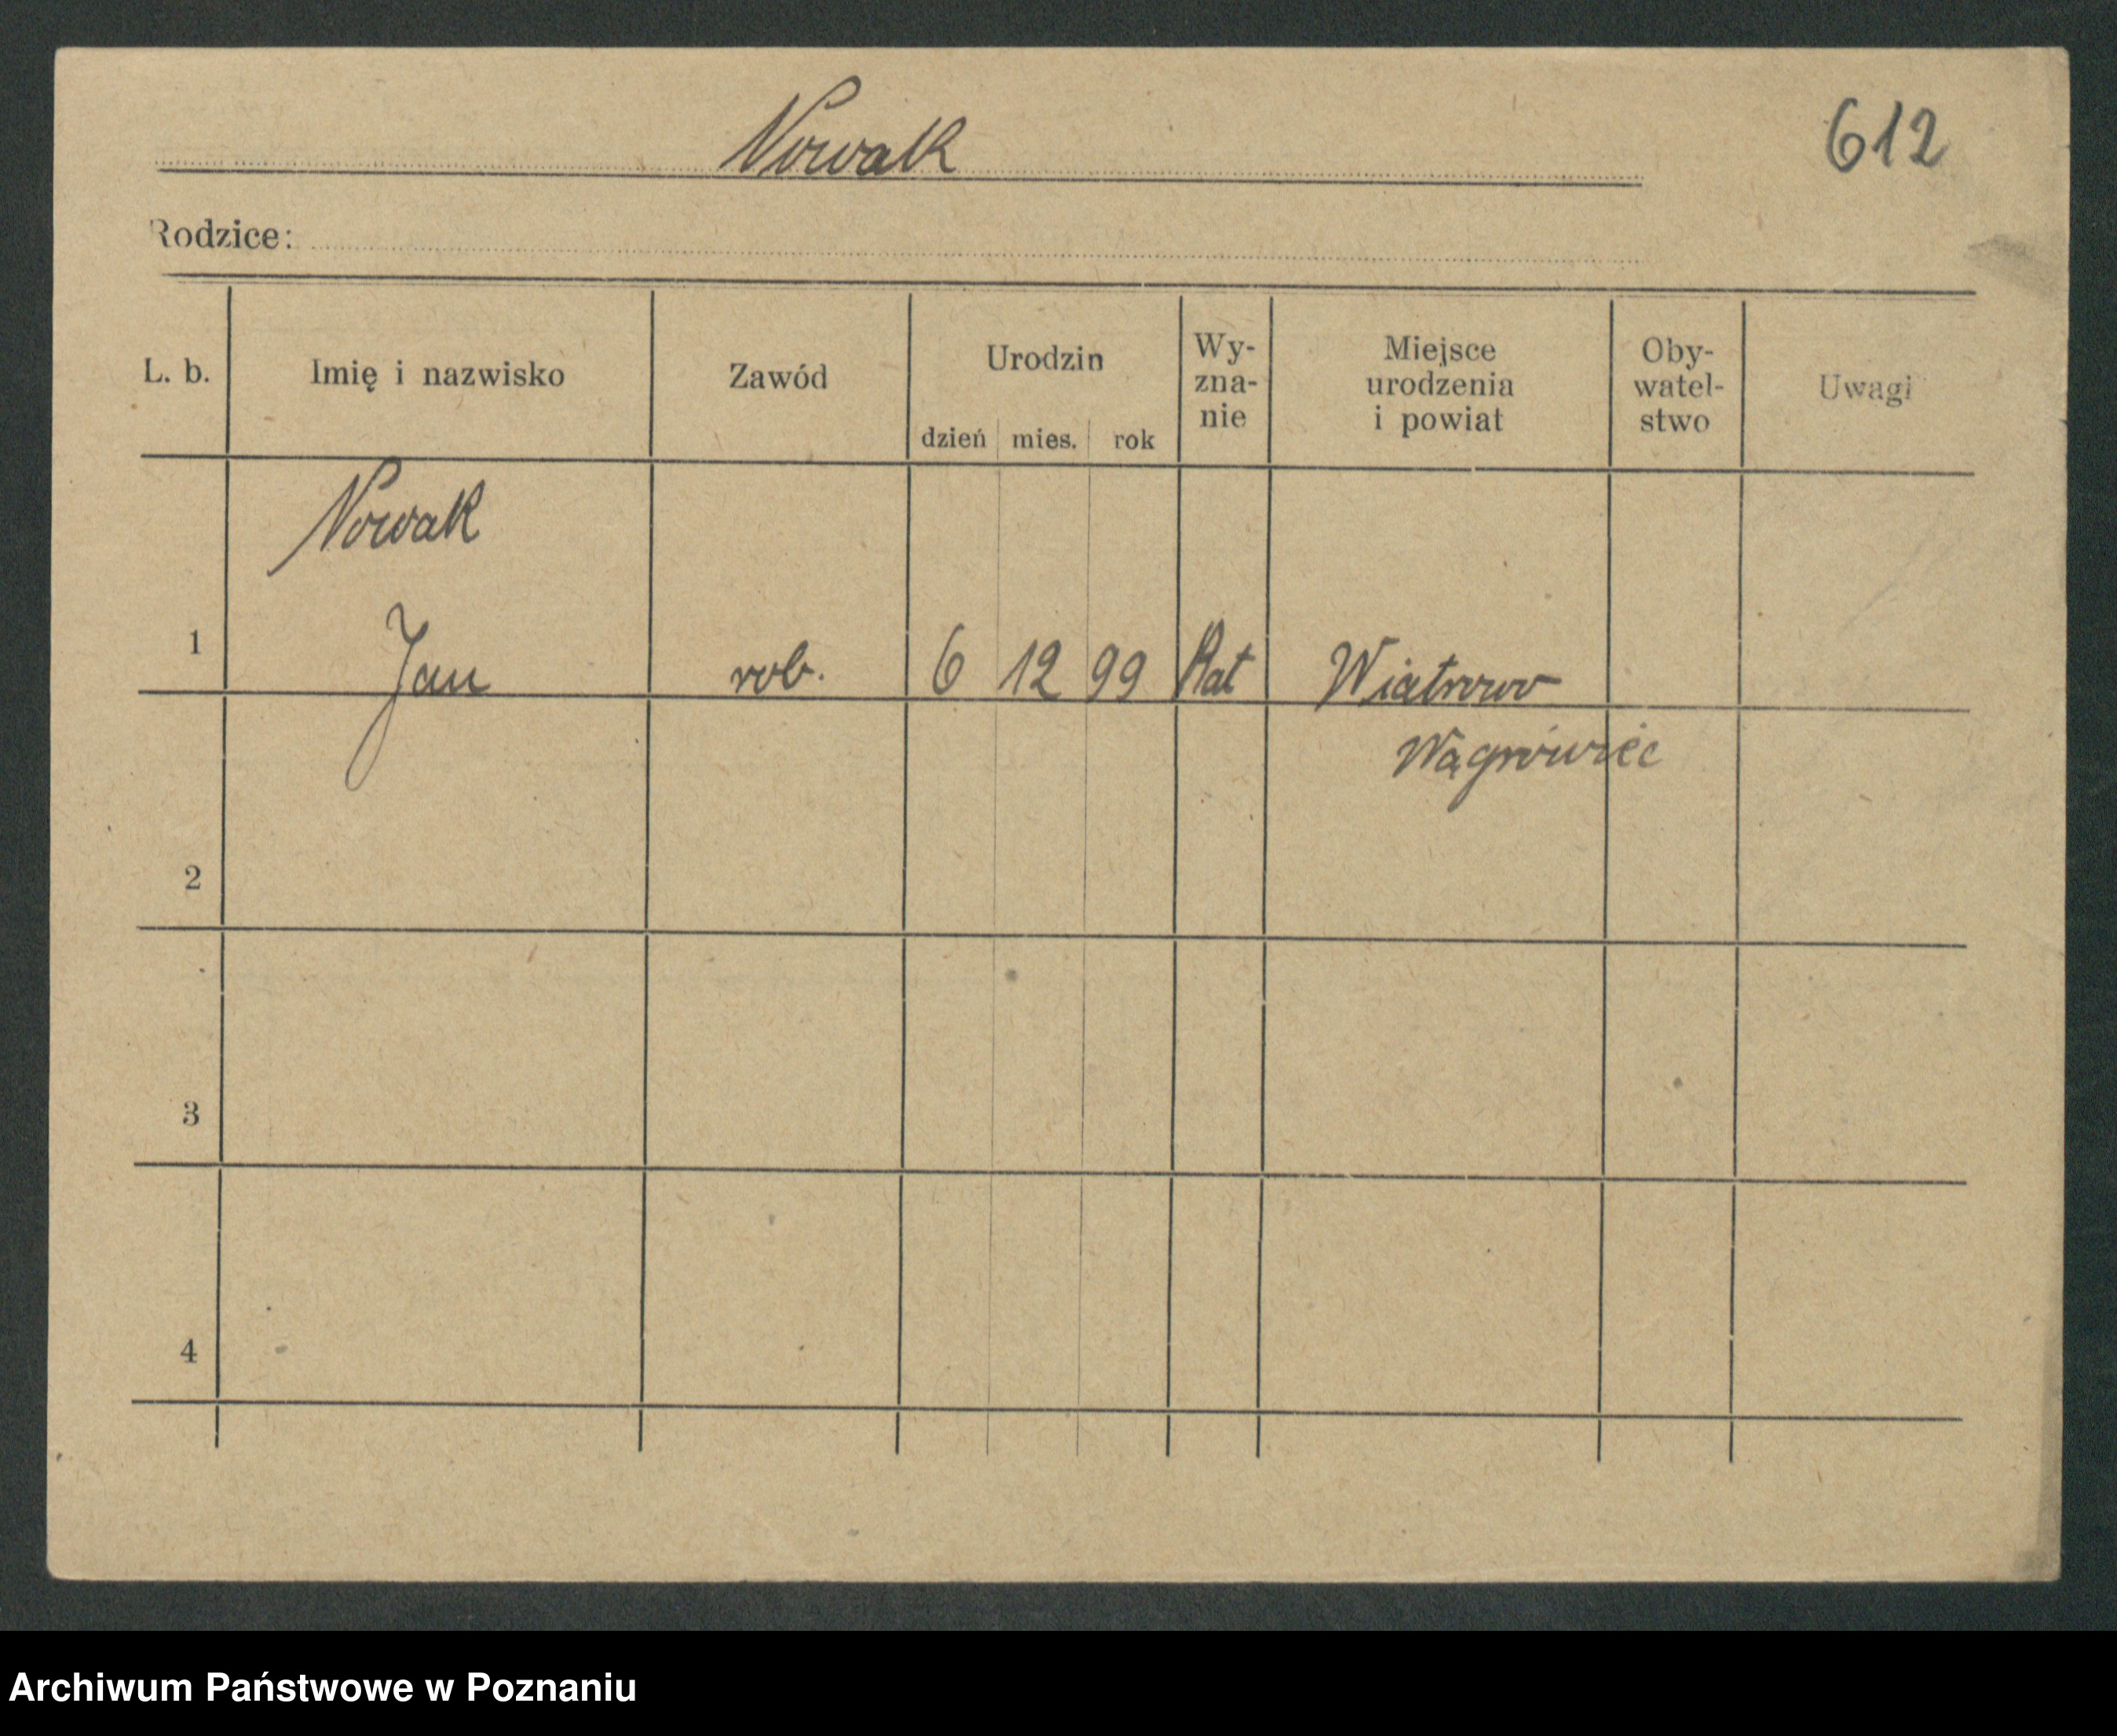 Nowak
612
Rodzice:
L. b. Imię i nazwisko Zawód Urodzin dzień mies. rok Wy-zna-nie Miejsce urodzenia i powiat Oby-watel-stwo Uwagi
Nowak
1 Jan rob. 6 12 99 Kat Wiatrowo
Wągrówiec
2
3
4
Archiwum Państwowe w Poznaniu